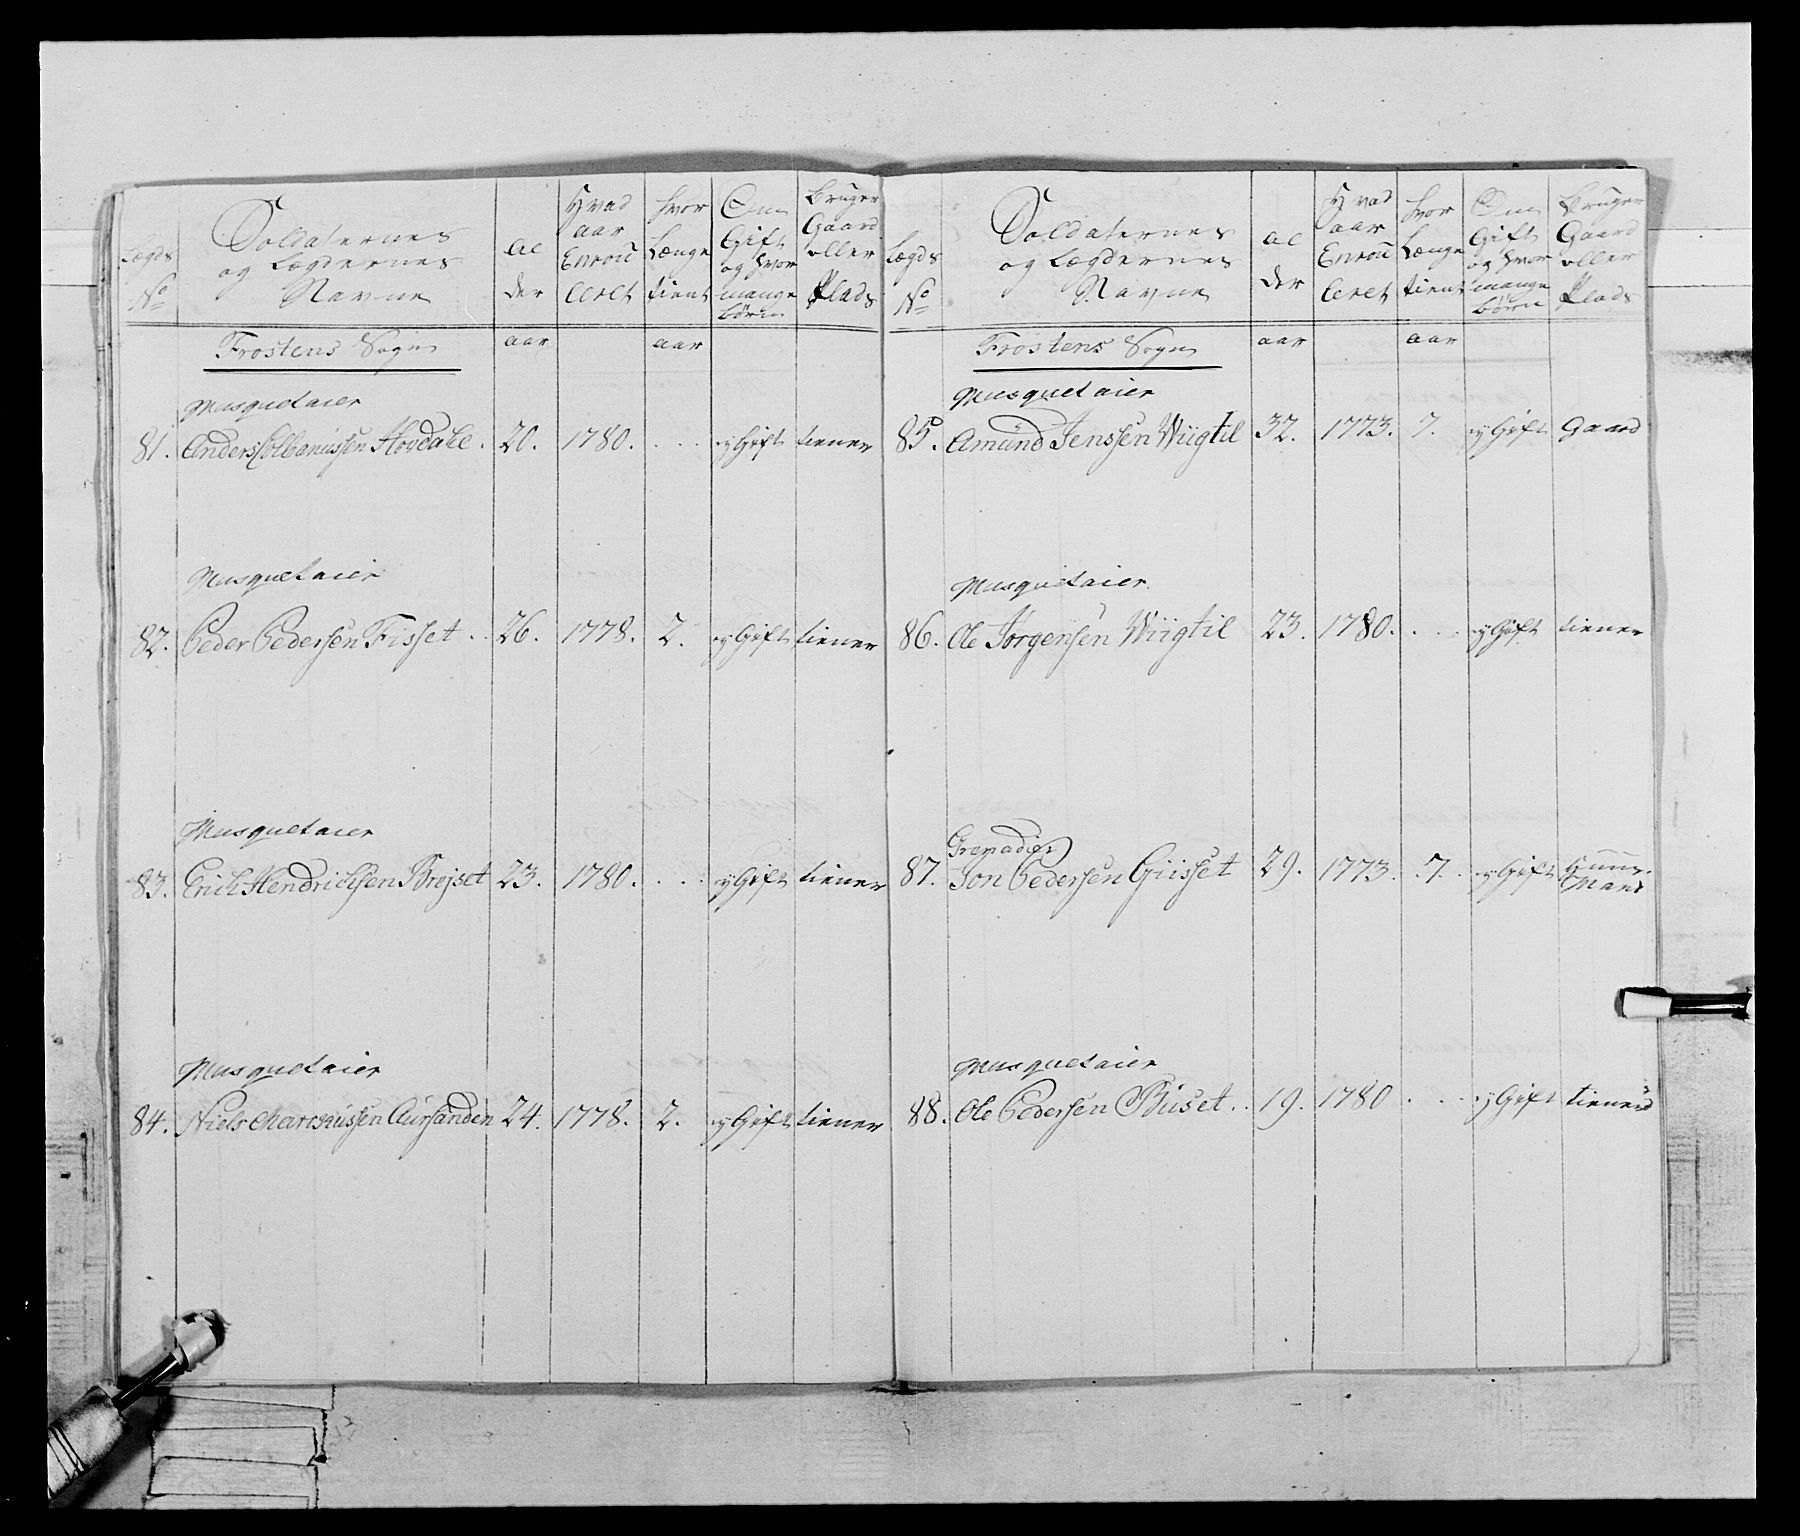 Lægds No
Soldaternes og Lægdernes Navne
Alder
Hvad aar Enroulleret
Hvor Længe tient
Om Gift og hvor mange børn
Bruger Gaard eller Plads
Frostens Sogn aar aar
Musquetaier
81. Anders Colbanussen Hovdahl. 20. 1780. . . . ey Gift tiener
Musquetaier
82. Peder Pedersen Fisset . . 26. 1778. 2. ey Gift tiener
Musquetaier
83. Erich Hendrichsen Brejset 23. 1780. . . . ey Gift tiener
Musquetaier
84. Niels Aursanden 24. 1778. 2. ey Gift tiener
Lægds No
Soldaternes og Lægdernes Navne
Alder
Hvad aar Enroulleret
Hvor Længe tient
Om Gift og hvor mange børn
Bruger Gaard eller Plads
Frostens Sogn aar aar
Musquetaier
85. Amund Jenssen Wiigtil 32. 1773. 7. ey Gift Gaard
Musquetaier
86. Ole Jørgensen Wiigtil 23. 1780. . . . ey Gift tiener
Grenadier
87. Jon Pedersen Giisset 29. 1773. 7. ey Gift Huus-
Mand
Musquetaier
88. Ole Pedersen Buset . . 19. 1780 . . . ey Gift tiener